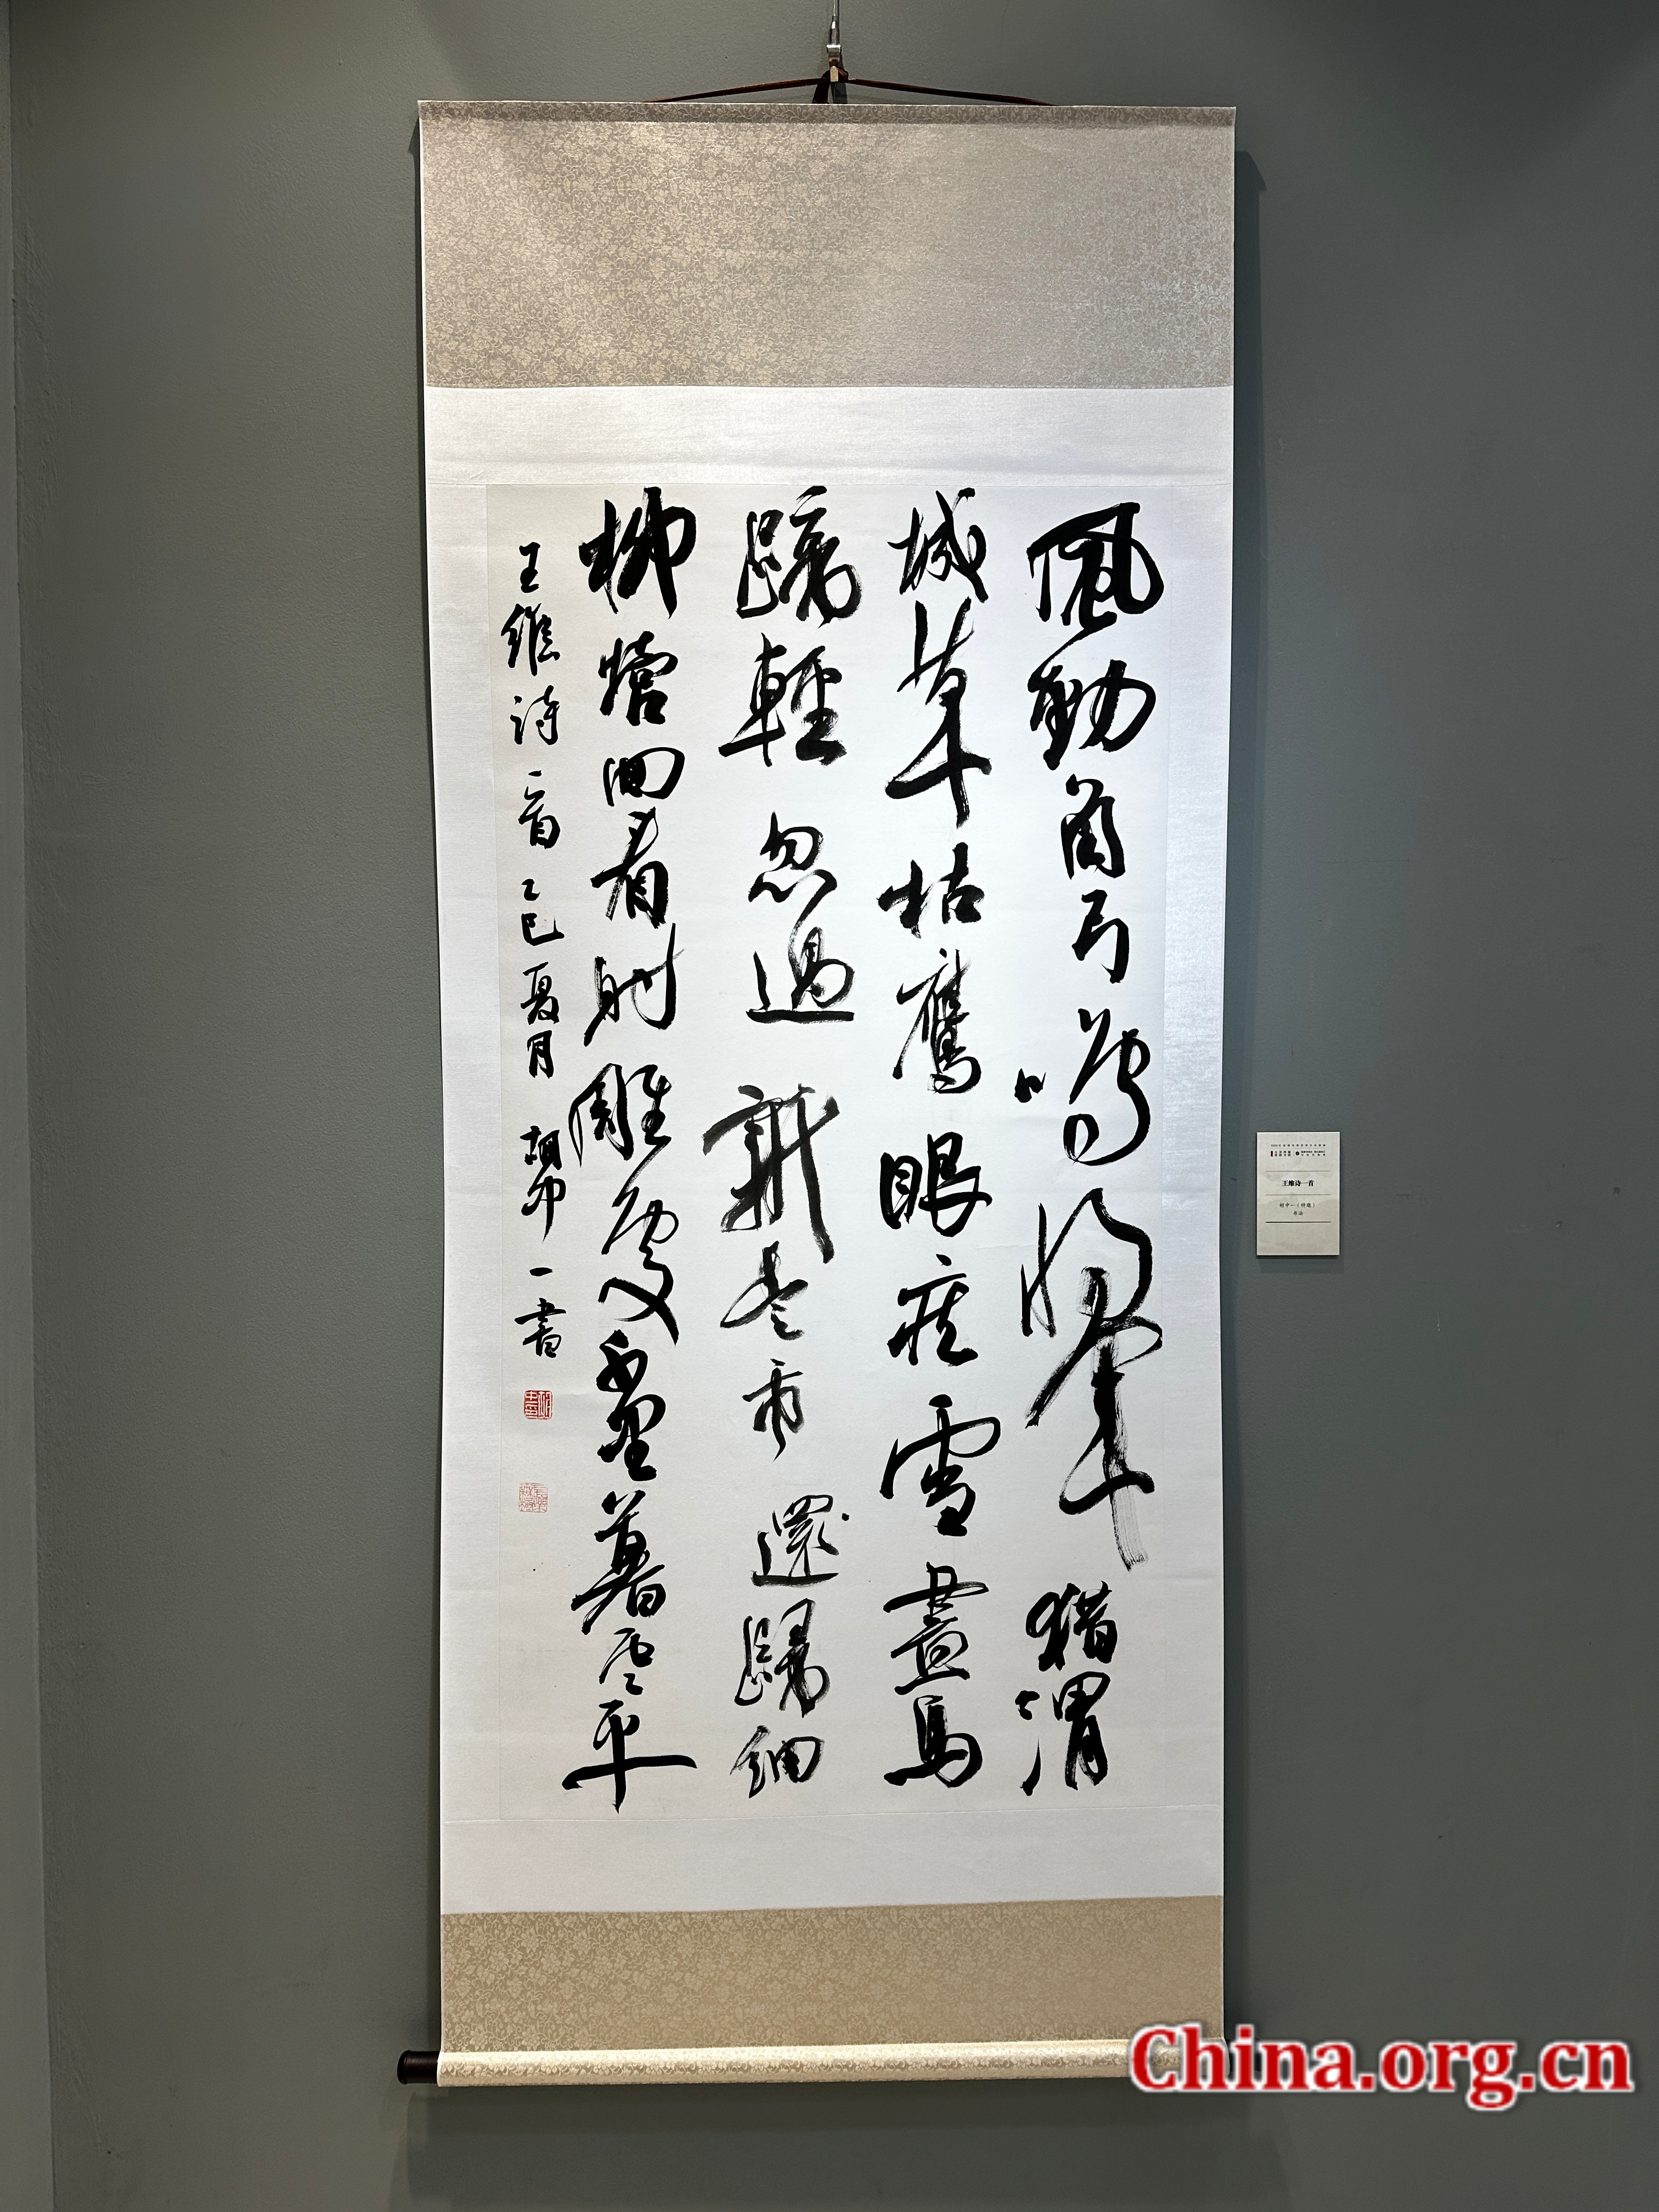 風勁角弓鳴將軍猎渭
城草枯鷹眼疾雪盡馬
蹄輕忽過新豐市還歸細
柳營回看射雕處千里暮云平
王維诗一首 乙巳夏月 胡中一書
王维诗一首
胡中一（特邀）
书法
China.org.cn